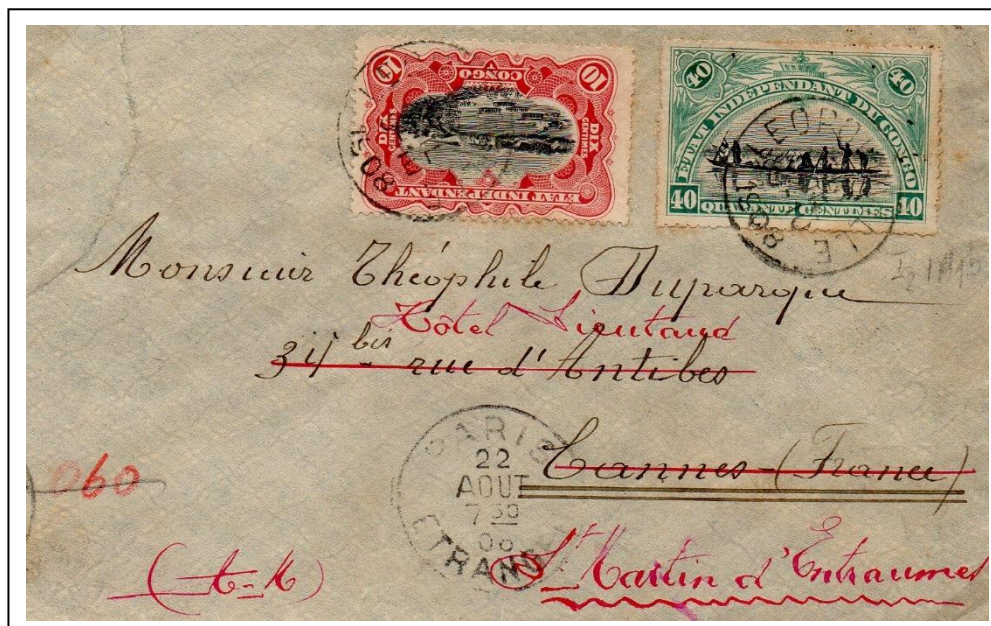 10 CONGO 10
DIX CENTIMES DIX CENTIMES
ETAT INDEPENDANT
40 40
ETAT INDEPENDANT DU CONGO
40 QUARANTE CENTIMES 40
LEOPOLDVILLE
1908
Monsieur Théophile Duparque
Hôtel Lieutaud
34 bis rue d'Antibes
Cannes (France)
060
PARIS
22
AOUT
7 30
08
ETRANGER
(A-M)
St Martin d'Entraumes